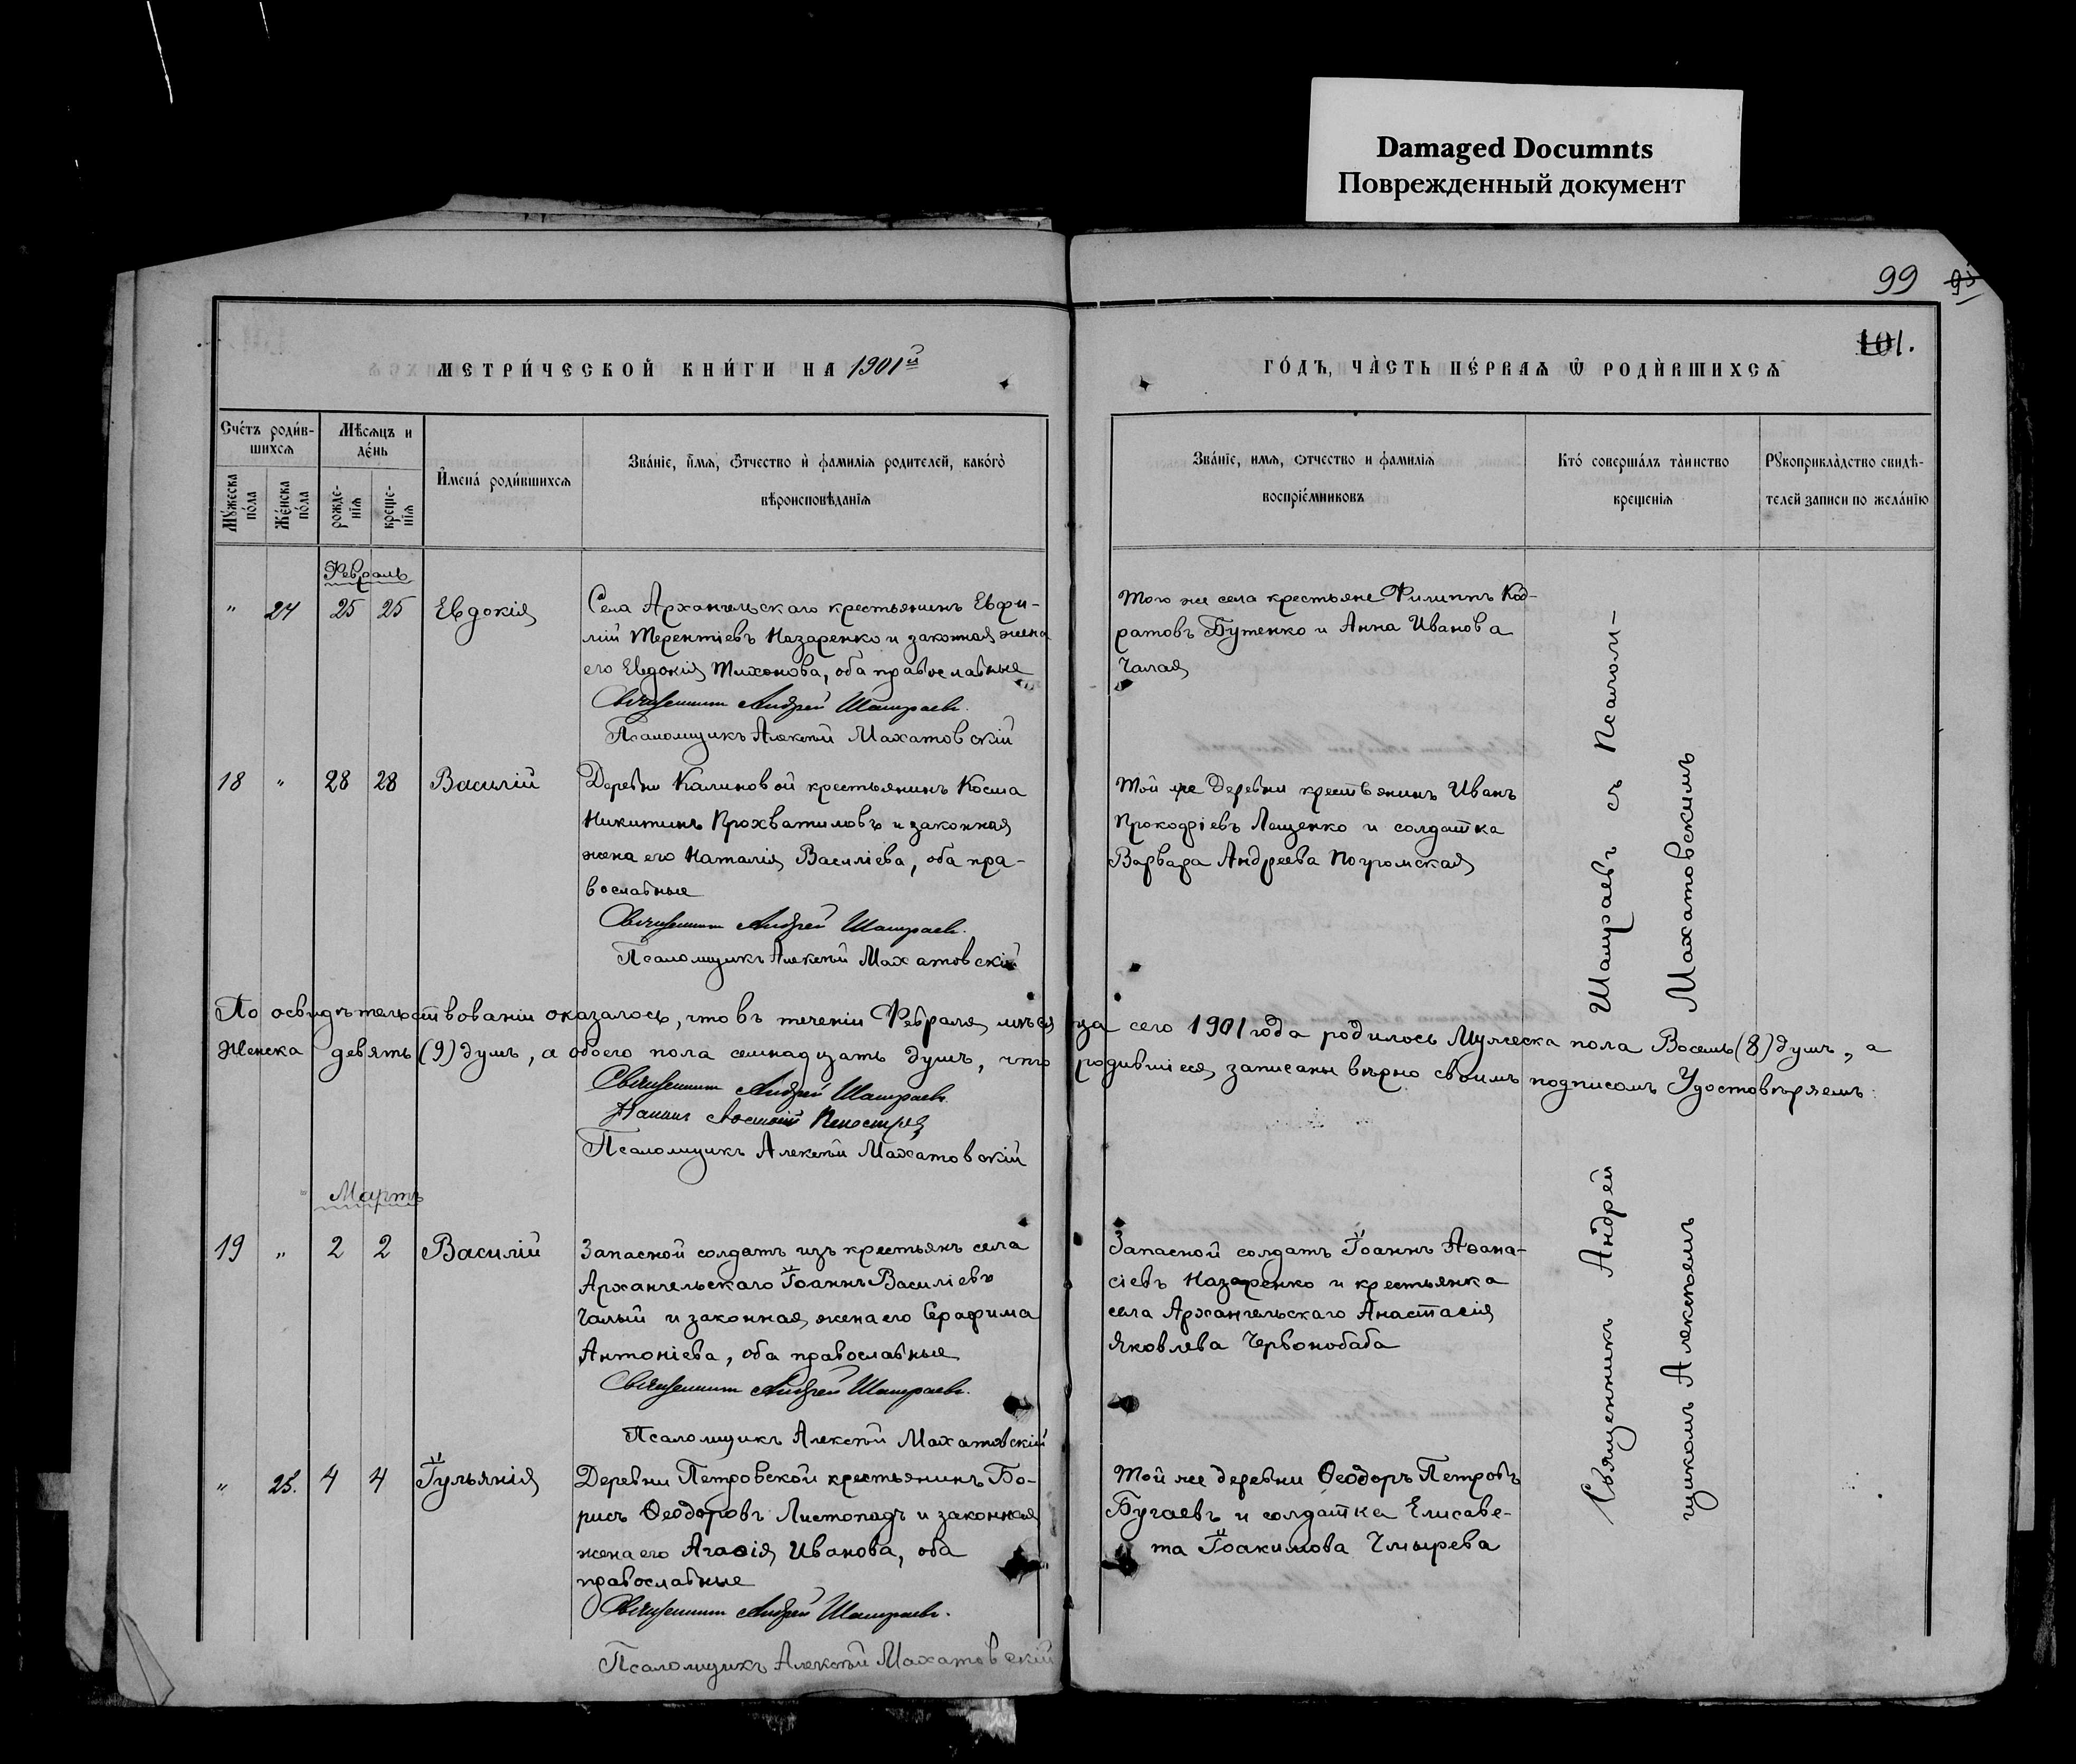 Damaged Documnts
Поврежденный документ
99
101.
МЕТРИ́ЧЕСКОЙ КНИ́ГИ НА 1901й
ГО́ДЪ, ЧА̀СТЬ ПЕ́РВАѦ Ѿ РОДЍВШИХСѦ
Сче́тъ роди́в-
шихсѧ
Му́жеска
по́ла
Же́нска
по́ла
Мѣ́сѧцъ и
де́нь
рожде-
нїѧ
креще-
нїѧ
И҆мена̀ роди́вшихсѧ
Зва́нїе, и҆́мѧ, ѻ҆́тчество и҆ фамилїѧ родителей, како́гѡ
вѣроисповѣданїѧ
Зва́нїе, имѧ, ѻтчество и фамилїѧ
воспрїе́мниковъ
Кто́ соверша́лъ та̀инство
крещенїѧ
Рꙋкоприкла̀дство свидѣ-
телей записи по жела́нїю
Февраль
" 24 25 25 Евдокія
Села Архангельскаго крестьянинъ Евфи-
мій Терентіевъ Назаренко и законная жена
его Евдокія Тихонова, оба православные
Священникъ Андрей Шашраевъ.
Псаломщикъ Алексѣй Махатовскій
Того же села крестьяне Филиппъ Код-
ратовъ Бутенко и Анна Иванова
Чалая
18 " 28 28 Василій
Деревни Калиновой крестьянинъ Косма
Никитинъ Прохватиловъ и законная
жена его Наталія Василіева, оба пра-
вославные
Священникъ Андрей Шашраевъ.
Псаломщикъ Алексѣй Махатовскій
Той же деревни крестьянинъ Иванъ
Прокофіевъ Лащенко и солдатка
Варвара Андреева Погромская
По освидѣтельствованіи оказалось, что въ теченіи Февраля мѣсяца сего 1901 года родилось Мужеска пола Восемь (8) душъ, а
Женска девять (9) душъ, а обоего пола семнадцать душъ, что родившіеся записаны вѣрно своимъ подписомъ Удостовѣряемъ:
Священникъ Андрей Шашраевъ.
Псаломщикъ Алексѣй Махатовскій
Мартъ
19 " 2 2 Василій
Запасной солдатъ изъ крестьянъ села
Архангельскаго Іоаннъ Василіевъ
Чалый и законная жена его Серафима
Антоніева, оба православные
Священникъ Андрей Шашраевъ.
Псаломщикъ Алексѣй Махатовскій
Запасной солдатъ Іоаннъ Аѳана-
сіевъ Назаренко и крестьянка
села Архангельскаго Анастасія
Яковлева Червонобаба
" 25. 4 4 Іульянія
Деревни Петровской крестьянинъ Бо-
рисъ Ѳеодоровъ Листопадъ и законная
жена его Агаѳія Иванова, оба
православные
Священникъ Андрей Шашраевъ.
Псаломщикъ Алексѣй Махатовскій
Той же деревни Ѳеодоръ Петровъ
Бугаевъ и солдатка Елисаве-
та Іоакимова Чмырева
Священникъ Андрей Шашраевъ съ Псалом-
щикомъ Алексѣемъ Махатовскимъ